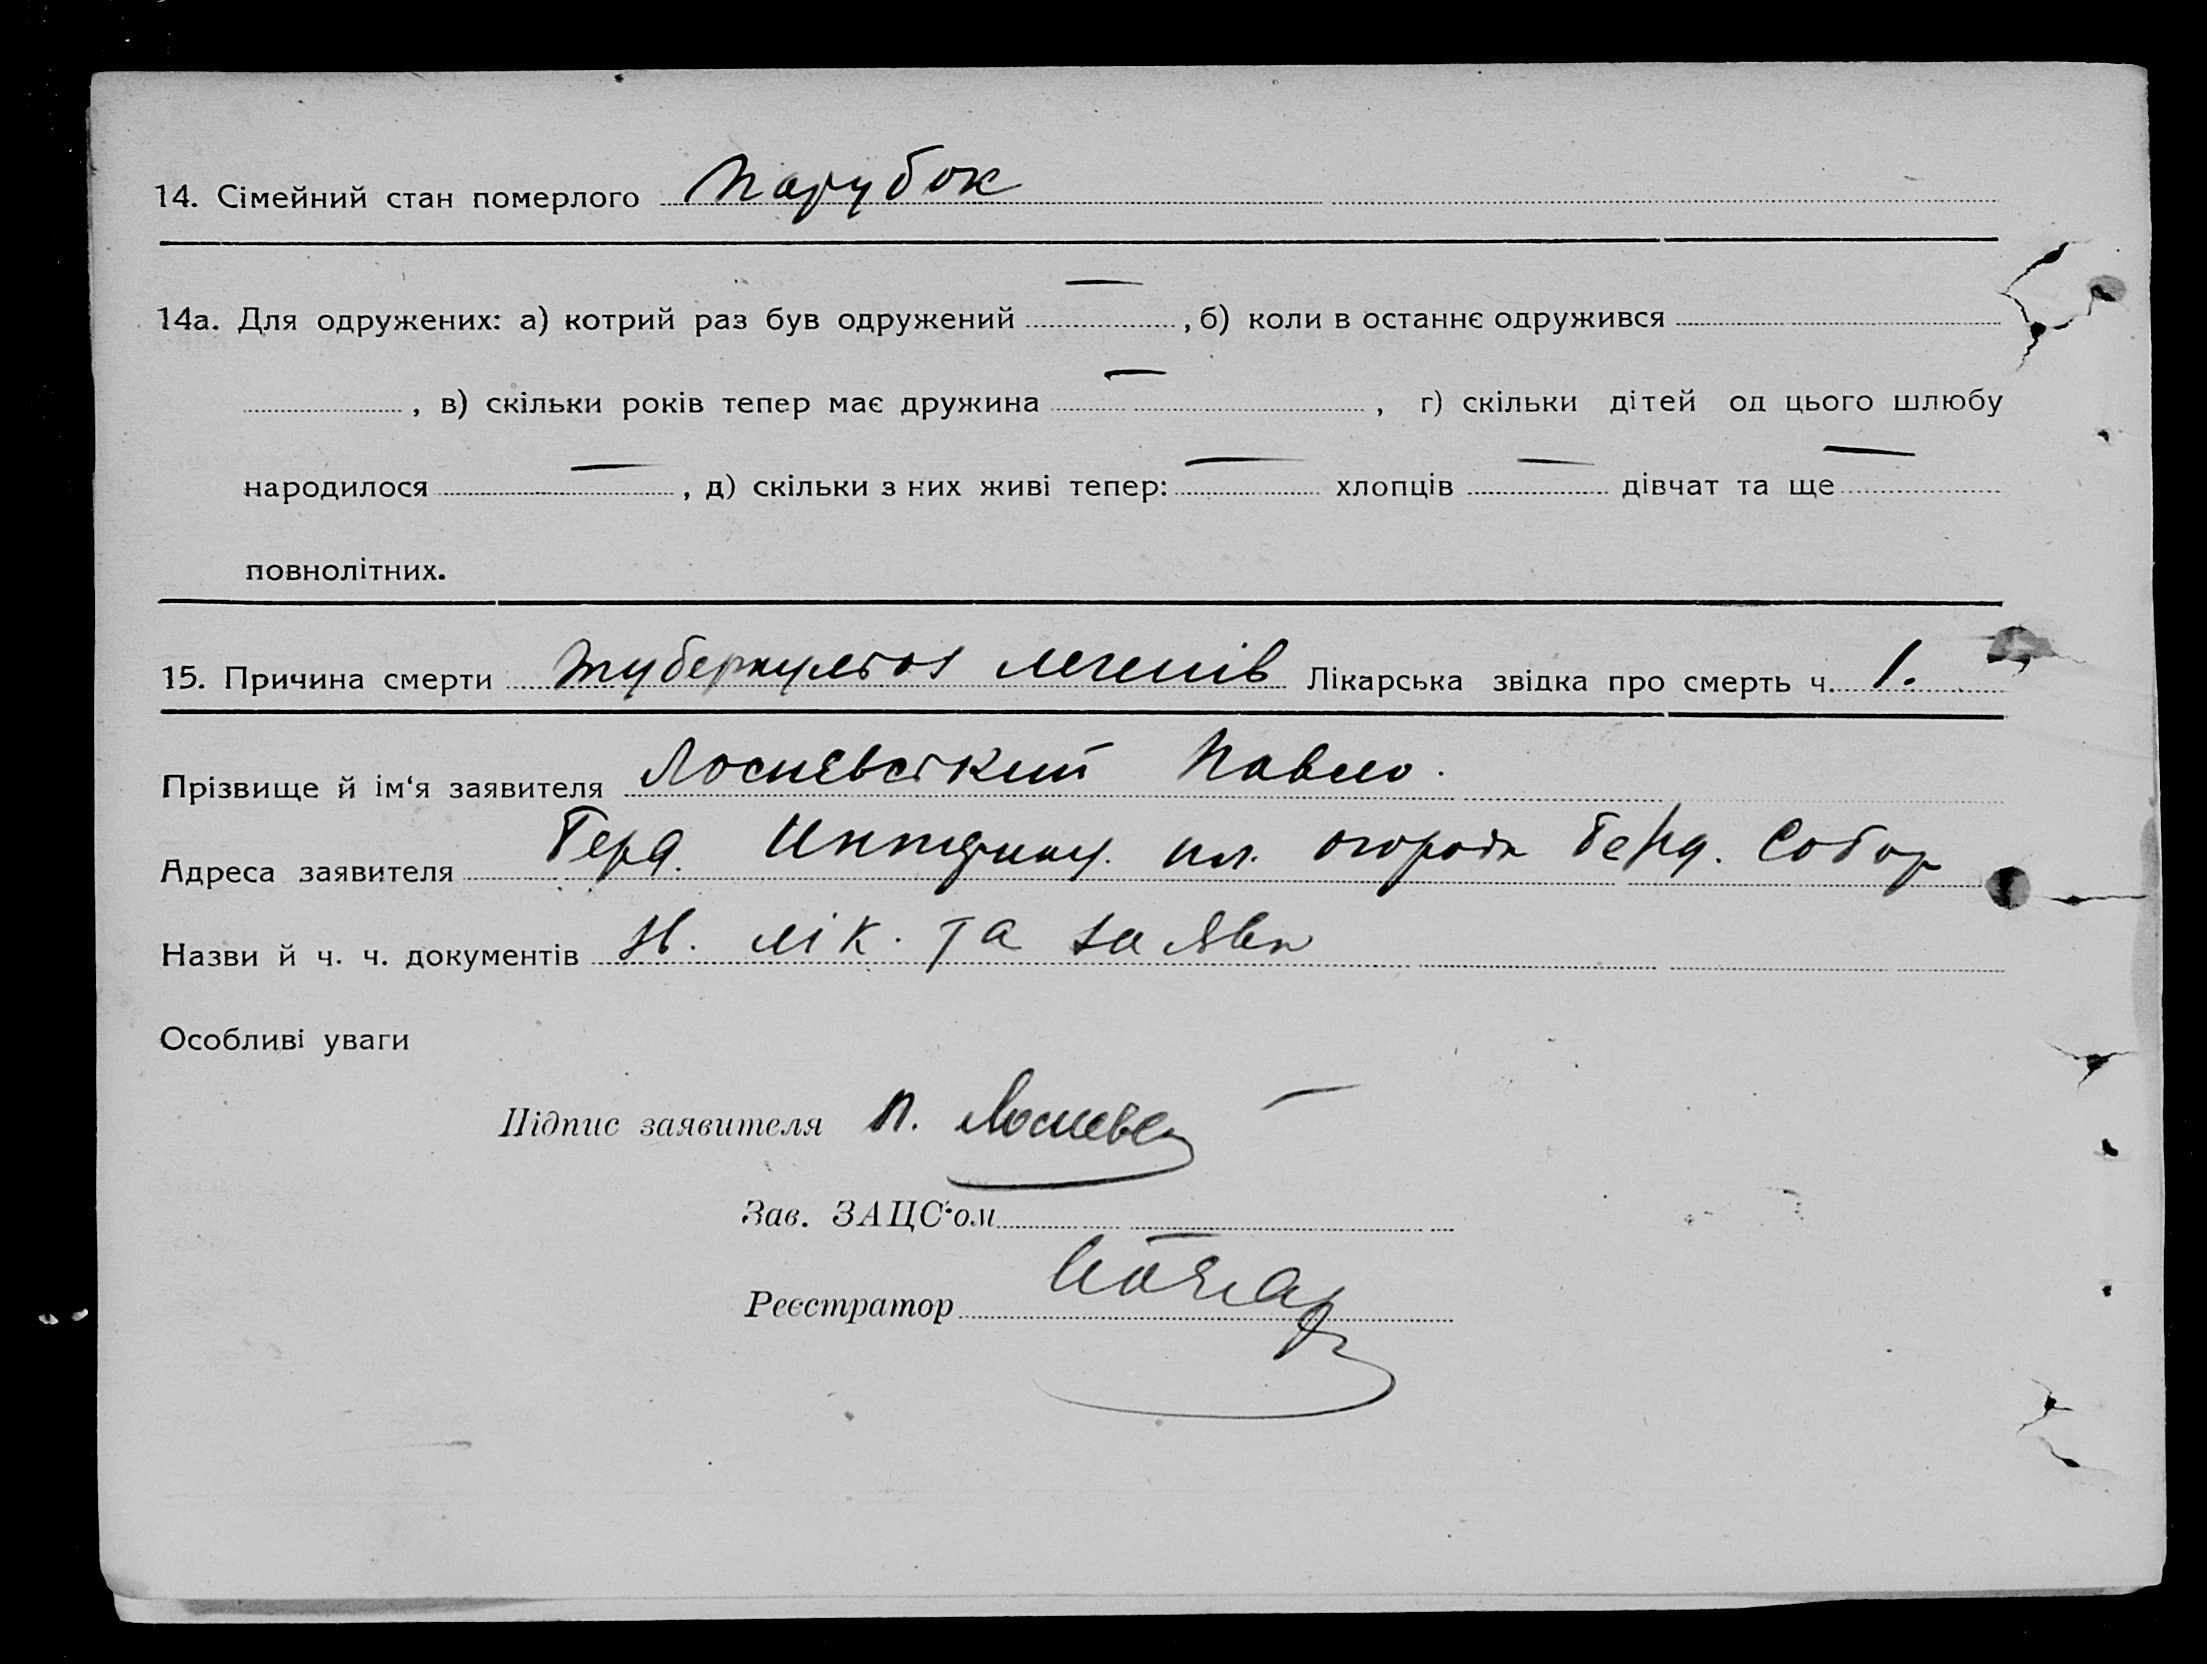 14. Сімейний стан померлого Парубок
14а. Для одружених: а) котрий раз був одружений —, б) коли в останнє одружився
, в) скільки років тепер має дружина —, г) скільки дітей од цього шлюбу
народилося —, д) скільки з них живі тепер: — хлопців — дівчат та ще —
повнолітних.
15. Причина смерти туберкульоз легенів Лікарська звідка про смерть ч. 1.
Прізвище й ім‘я заявителя Лосиевський Павло.
Адреса заявителя Берд.
Назви й ч. ч. документів лік. та заява
Особливі уваги
Підпис заявителя П. —
Зав. ЗАЦС‘ом
Реєстратор